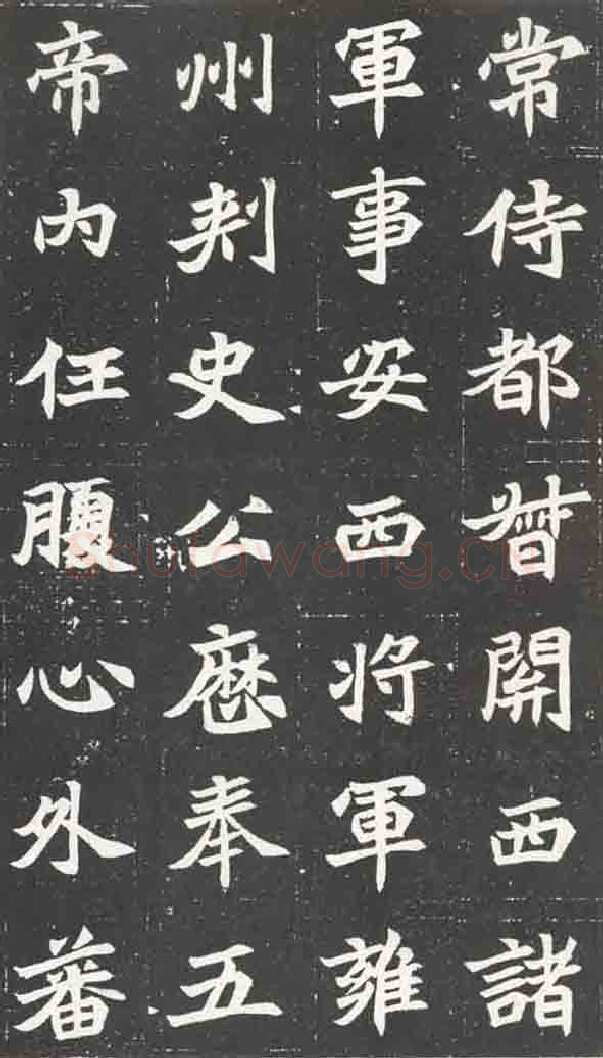 常侍都督關西諸
軍事安西將軍雍
州刺史公歷奉五
帝內任腹心外蕃
shufawang.cn